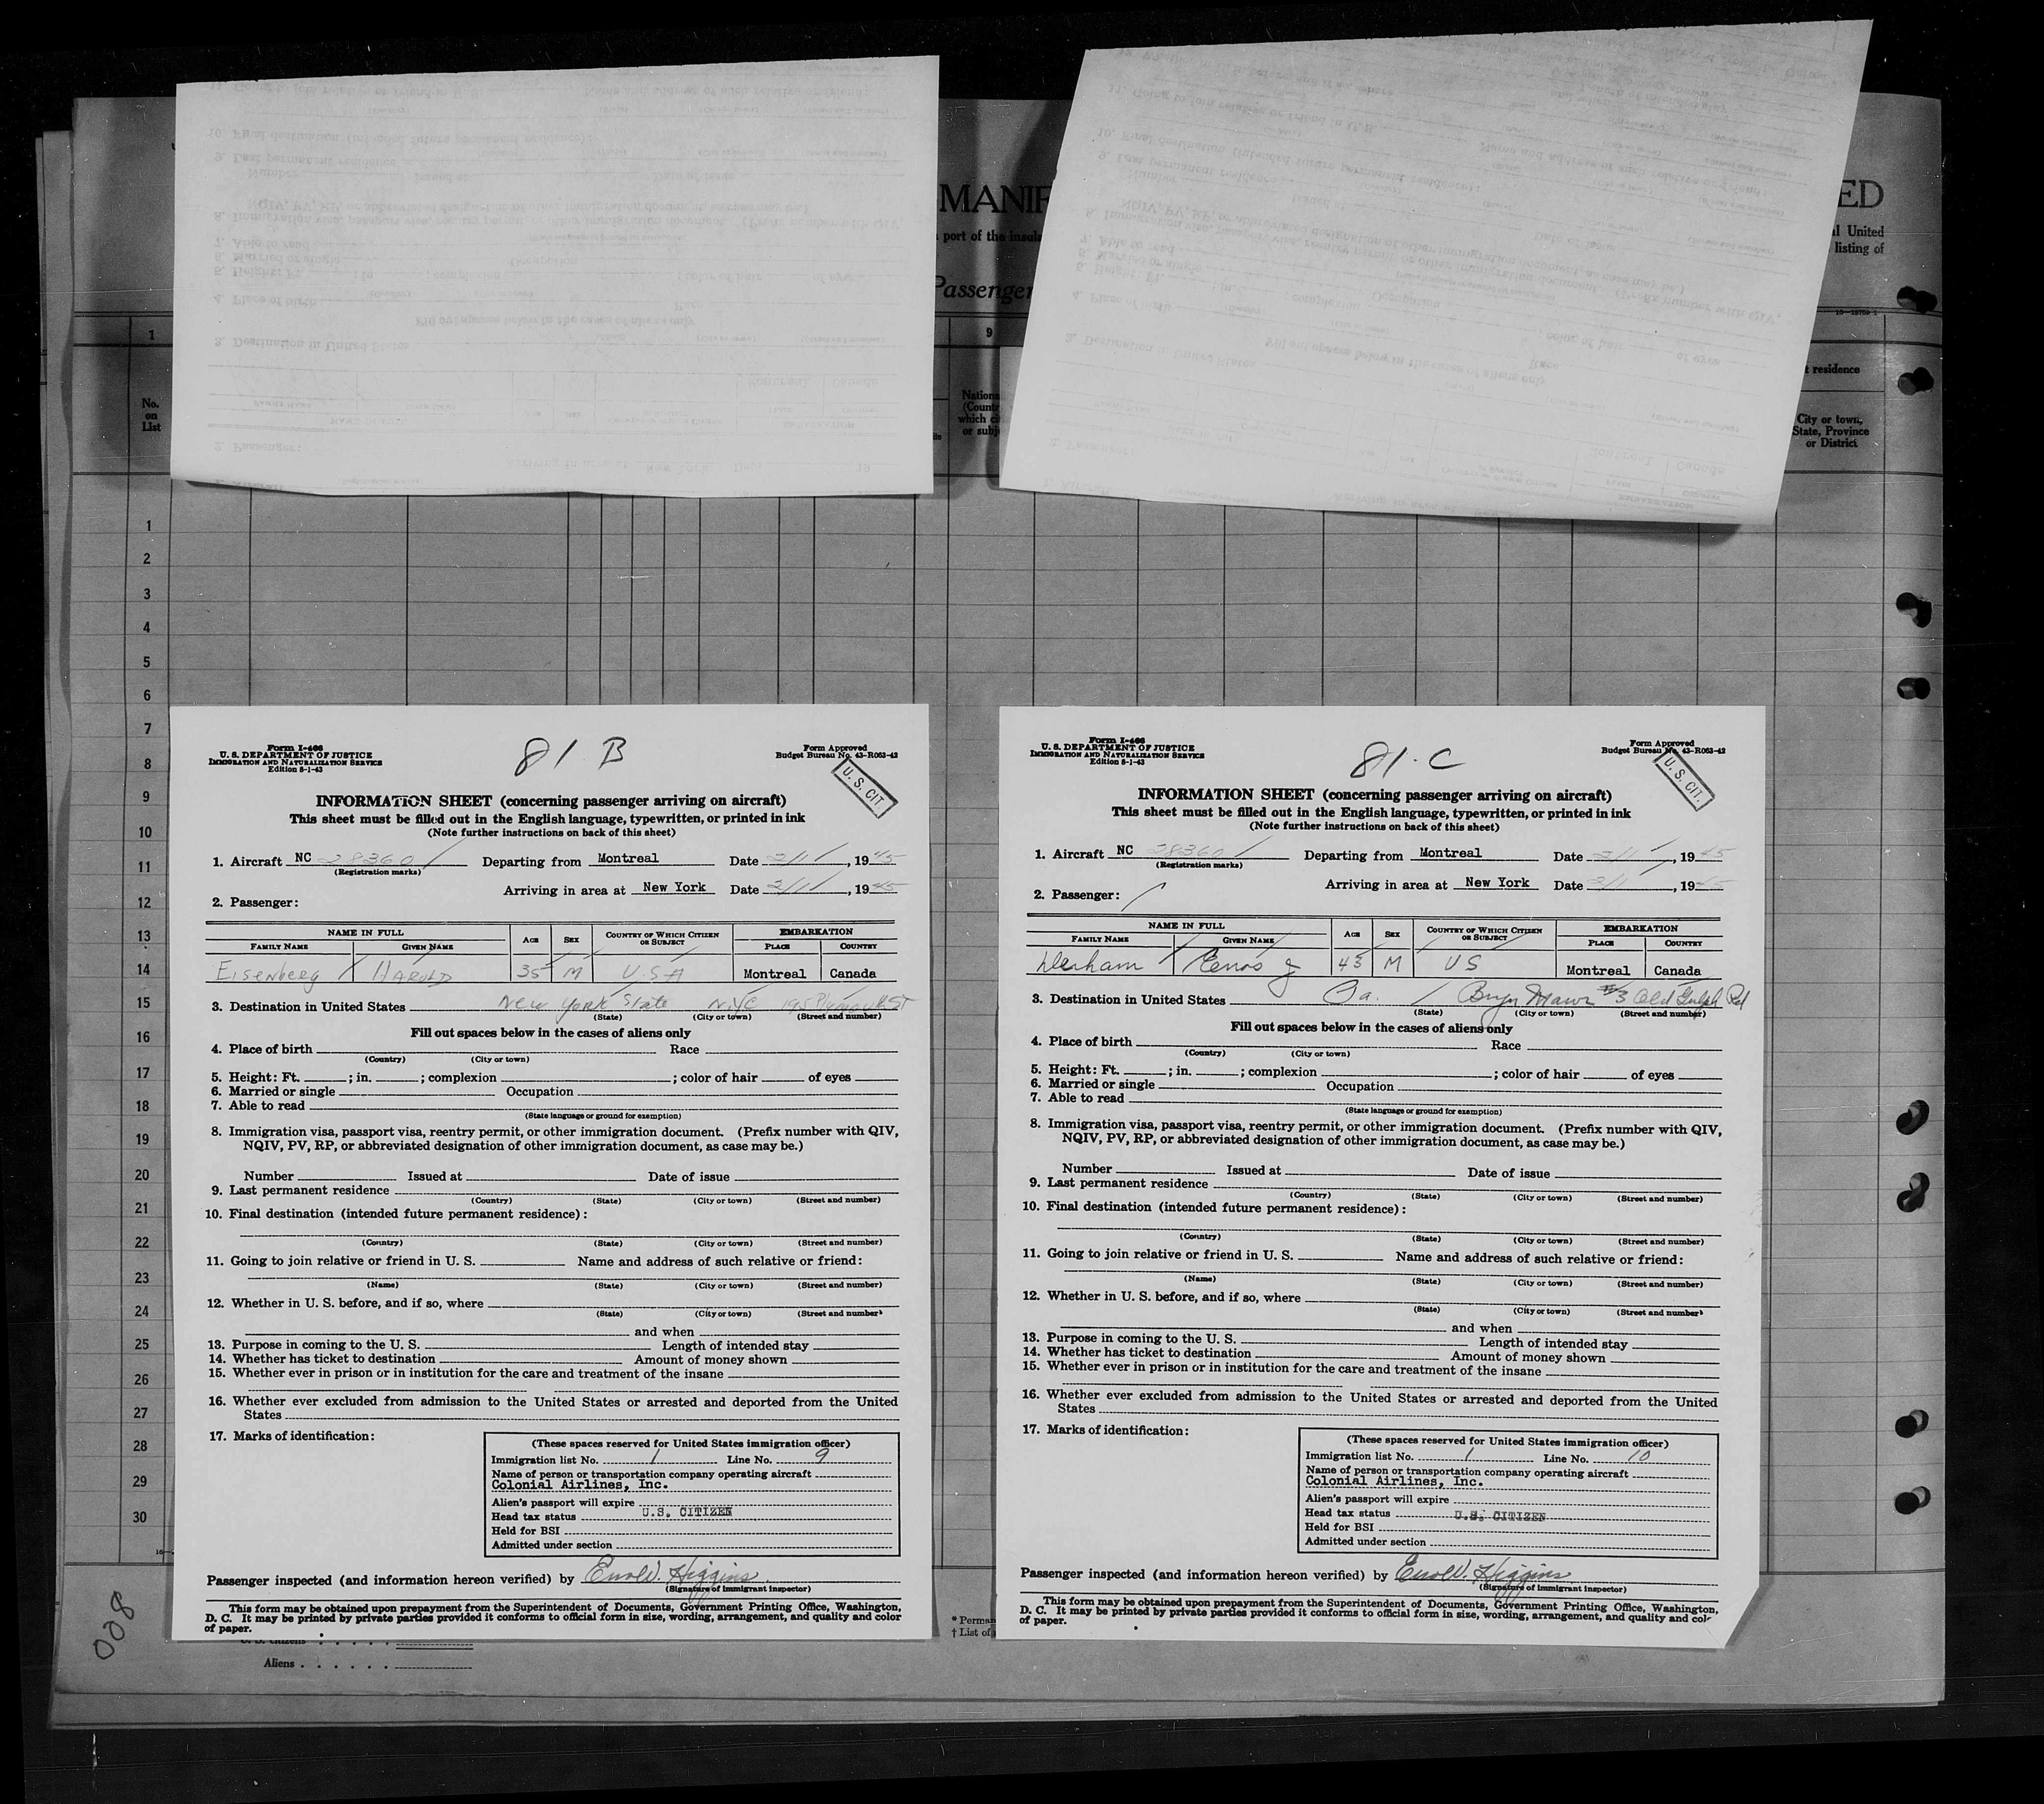 MANIF
ED
port of the insula
l United
listing of
Passenger
1
9
No.
on
List
residence
City or town,
State, Province
or District
1
2
3
4
5
6
7
8
9
10
11
12
13
14
15
16
17
18
19
20
21
22
23
24
25
26
27
28
29
30
008
Aliens
* Perman
† List of
81 B
Form I-466
U. S. DEPARTMENT OF JUSTICE
IMMIGRATION AND NATURALIZATION SERVICE
Edition 8-1-43
Form Approved
Budget Bureau No. 43-R063-42
U. S. CIT.
INFORMATION SHEET (concerning passenger arriving on aircraft)
This sheet must be filled out in the English language, typewritten, or printed in ink
(Note further instructions on back of this sheet)
1. Aircraft NC 28360 Departing from Montreal Date 2/11, 1945
(Registration marks)
Arriving in area at New York Date 2/11, 1945
2. Passenger:
NAME IN FULL AGE SEX COUNTRY OF WHICH CITIZEN OR SUBJECT EMBARKATION
FAMILY NAME GIVEN NAME PLACE COUNTRY
Eisenberg HAROLD 35 M U.S.A Montreal Canada
3. Destination in United States New York State N.Y.C 195 ST
(State) (City or town) (Street and number)
Fill out spaces below in the cases of aliens only
4. Place of birth Race
(Country) (City or town)
5. Height: Ft. ; in. ; complexion ; color of hair of eyes
6. Married or single Occupation
7. Able to read
(State language or ground for exemption)
8. Immigration visa, passport visa, reentry permit, or other immigration document. (Prefix number with QIV,
NQIV, PV, RP, or abbreviated designation of other immigration document, as case may be.)
Number Issued at Date of issue
9. Last permanent residence
(Country) (State) (City or town) (Street and number)
10. Final destination (intended future permanent residence):
(Country) (State) (City or town) (Street and number)
11. Going to join relative or friend in U. S. Name and address of such relative or friend:
(Name) (State) (City or town) (Street and number)
12. Whether in U. S. before, and if so, where
(State) (City or town) (Street and number)
and when
13. Purpose in coming to the U. S. Length of intended stay
14. Whether has ticket to destination Amount of money shown
15. Whether ever in prison or in institution for the care and treatment of the insane
16. Whether ever excluded from admission to the United States or arrested and deported from the United
States
17. Marks of identification:
(These spaces reserved for United States immigration officer)
Immigration list No. 1 Line No. 9
Name of person or transportation company operating aircraft
Colonial Airlines, Inc.
Alien's passport will expire
Head tax status U.S. CITIZEN
Held for BSI
Admitted under section
Passenger inspected (and information hereon verified) by Errol W. Higgins
(Signature of immigrant inspector)
This form may be obtained upon prepayment from the Superintendent of Documents, Government Printing Office, Washington,
D. C. It may be printed by private parties provided it conforms to official form in size, wording, arrangement, and quality and color
of paper.
81 C
Form I-466
U. S. DEPARTMENT OF JUSTICE
IMMIGRATION AND NATURALIZATION SERVICE
Edition 8-1-43
Form Approved
Budget Bureau No. 43-R063-42
U. S. CIT.
INFORMATION SHEET (concerning passenger arriving on aircraft)
This sheet must be filled out in the English language, typewritten, or printed in ink
(Note further instructions on back of this sheet)
1. Aircraft NC 28360 Departing from Montreal Date 2/11, 1945
(Registration marks)
Arriving in area at New York Date 2/11, 1945
2. Passenger:
NAME IN FULL AGE SEX COUNTRY OF WHICH CITIZEN OR SUBJECT EMBARKATION
FAMILY NAME GIVEN NAME PLACE COUNTRY
Derham Enos J 43 M US Montreal Canada
3. Destination in United States Pa. Bryn Mawr #3 Old Gulph Rd
(State) (City or town) (Street and number)
Fill out spaces below in the cases of aliens only
4. Place of birth Race
(Country) (City or town)
5. Height: Ft. ; in. ; complexion ; color of hair of eyes
6. Married or single Occupation
7. Able to read
(State language or ground for exemption)
8. Immigration visa, passport visa, reentry permit, or other immigration document. (Prefix number with QIV,
NQIV, PV, RP, or abbreviated designation of other immigration document, as case may be.)
Number Issued at Date of issue
9. Last permanent residence
(Country) (State) (City or town) (Street and number)
10. Final destination (intended future permanent residence):
(Country) (State) (City or town) (Street and number)
11. Going to join relative or friend in U. S. Name and address of such relative or friend:
(Name) (State) (City or town) (Street and number)
12. Whether in U. S. before, and if so, where
(State) (City or town) (Street and number)
and when
13. Purpose in coming to the U. S. Length of intended stay
14. Whether has ticket to destination Amount of money shown
15. Whether ever in prison or in institution for the care and treatment of the insane
16. Whether ever excluded from admission to the United States or arrested and deported from the United
States
17. Marks of identification:
(These spaces reserved for United States immigration officer)
Immigration list No. 1 Line No. 10
Name of person or transportation company operating aircraft
Colonial Airlines, Inc.
Alien's passport will expire
Head tax status U.S. CITIZEN
Held for BSI
Admitted under section
Passenger inspected (and information hereon verified) by Errol W. Higgins
(Signature of immigrant inspector)
This form may be obtained upon prepayment from the Superintendent of Documents, Government Printing Office, Washington,
D. C. It may be printed by private parties provided it conforms to official form in size, wording, arrangement, and quality and col
of paper.